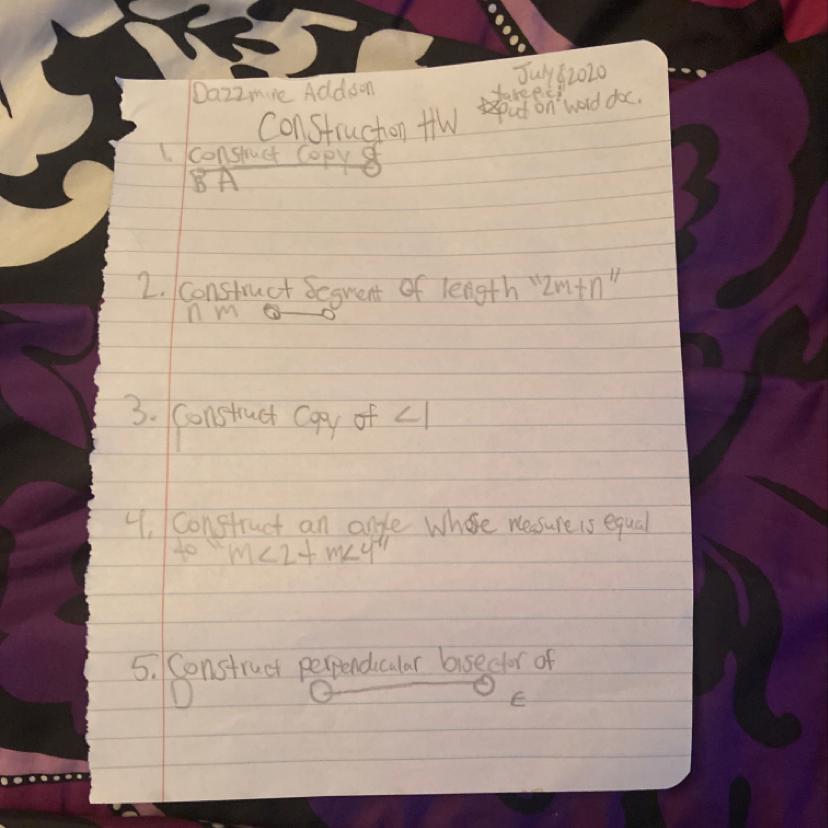 Dazzmine Addson
July 8 2020
take pic
put on word doc.
Construction HW
1. Construct Copy of
B A
2. Construct Segment of length "2m+n"
n m
3. Construct Copy of <1
4. Construct an angle whose measure is equal
to "m<2 + m<4"
5. Construct perpendicular bisector of
D E